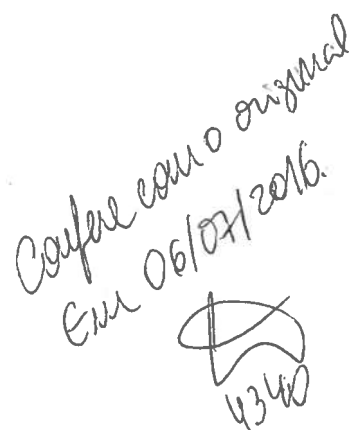 Confere com o original
Em 06/07/2016.
4340